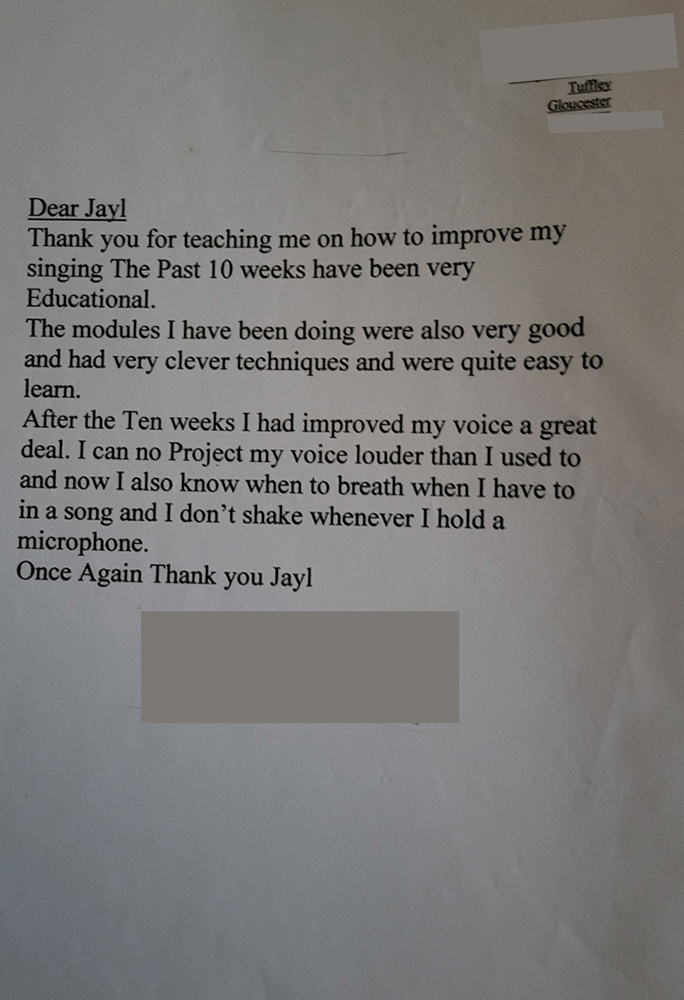 Tuffley
Gloucester
Dear Jayl
Thank you for teaching me on how to improve my
singing The Past 10 weeks have been very
Educational.
The modules I have been doing were also very good
and had very clever techniques and were quite easy to
learn.
After the Ten weeks I had improved my voice a great
deal. I can no Project my voice louder than I used to
and now I also know when to breath when I have to
in a song and I don’t shake whenever I hold a
microphone.
Once Again Thank you Jayl